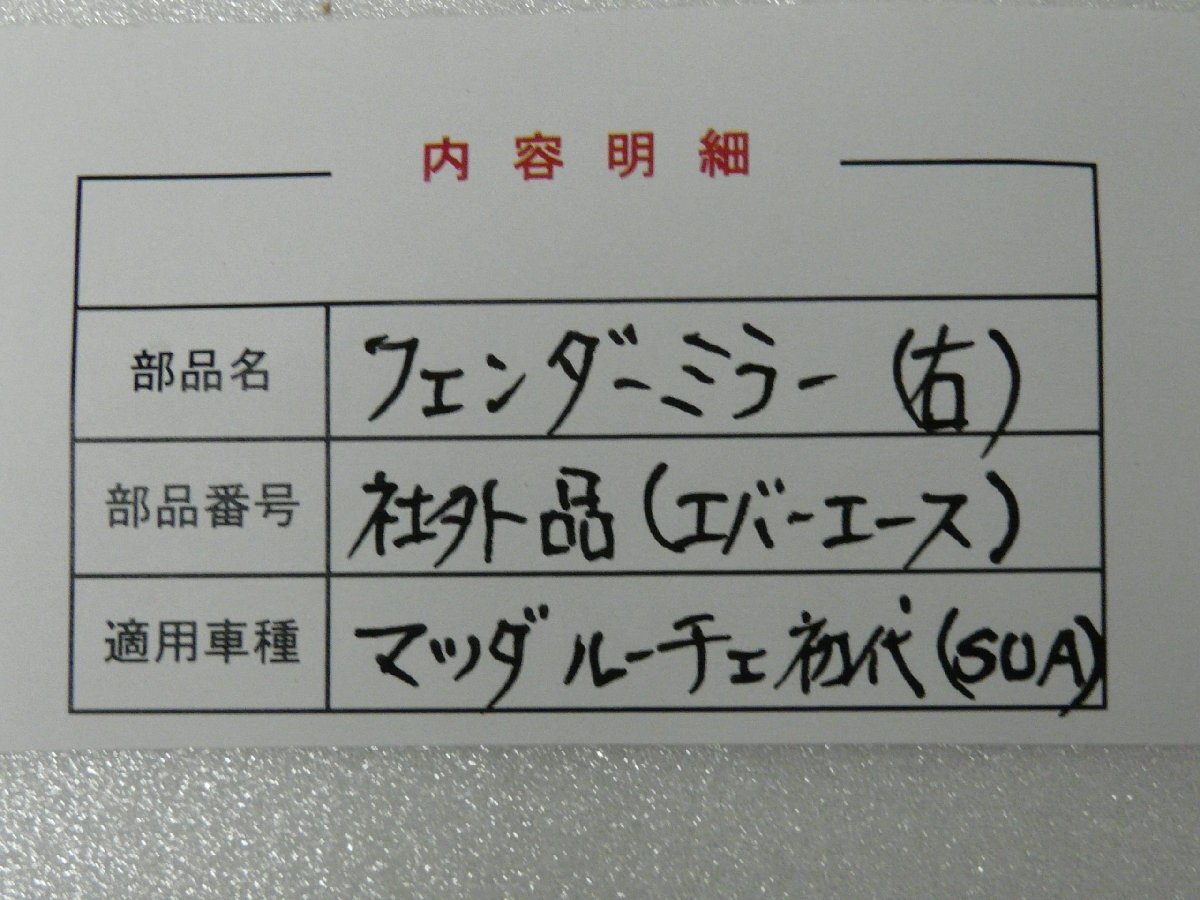 内容明細
部品名 フェンダーミラー (右)
部品番号 社外品 (エバーエース)
適用車種 マツダ ルーチェ 初代 (SUA)